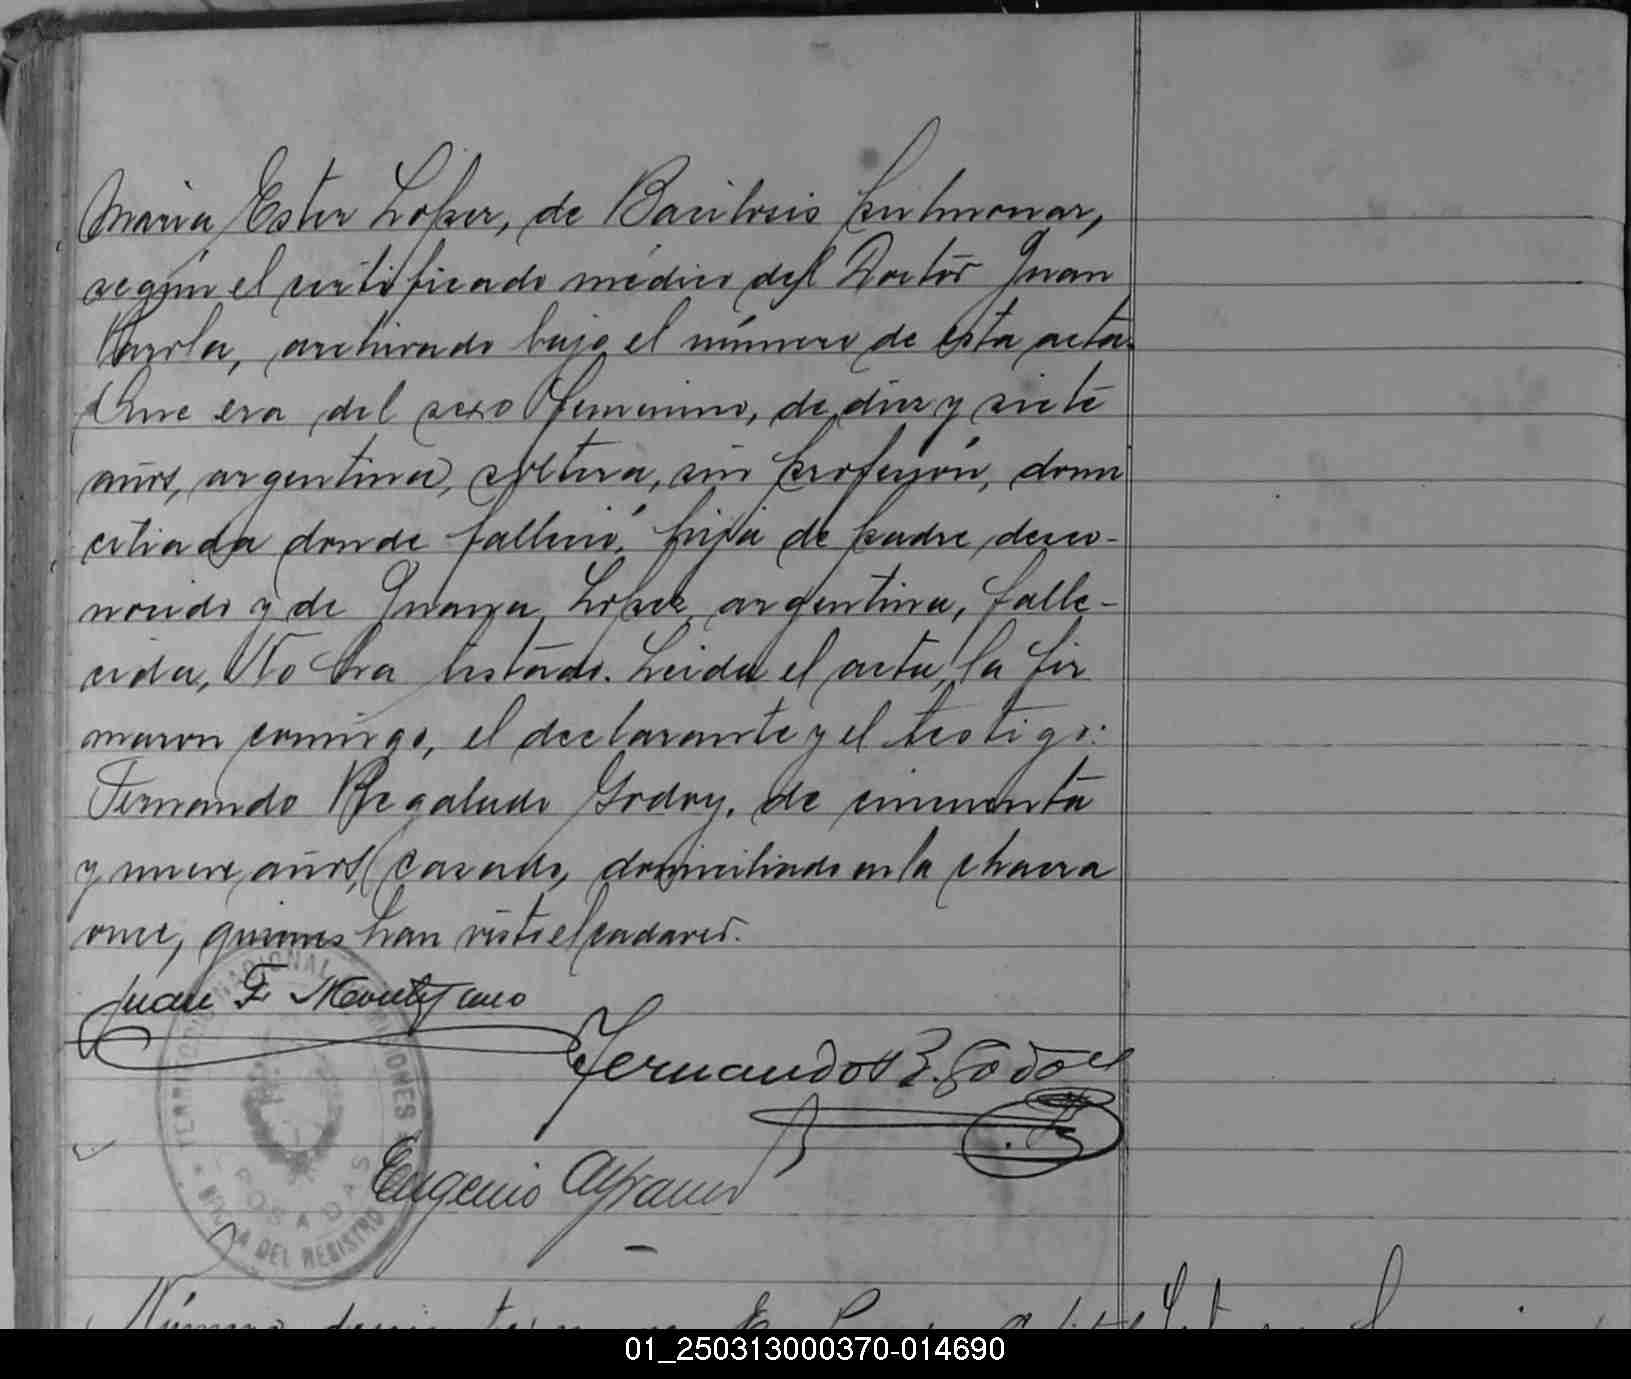 Maria Ester Lopez, de Bacilosis pulmonar,
según el certificado médico del Doctor Juan
archivado bajo el número de esta acta.
Que era del sexo femenino, de diez y siete
años, argentina, soltera, sin profesión, domi
ciliada donde falleció, hija de padre desco-
nocido y de Juana Lopez, argentina, falle-
cida, No ha testado. Leida el acta, la fir
maron conmigo, el declarante y el testigo:
Fernando Regalado Godoy, de cincuenta
y nueve años, casado, domiciliado en la chacra
once, quienes han visto el cadaver.
Juan F.
Fernando R. Godoy
Eugenio
TERRITORIO NACIONAL MISIONES
POSADAS
DEL REGISTRO
Número
01_250313000370-014690